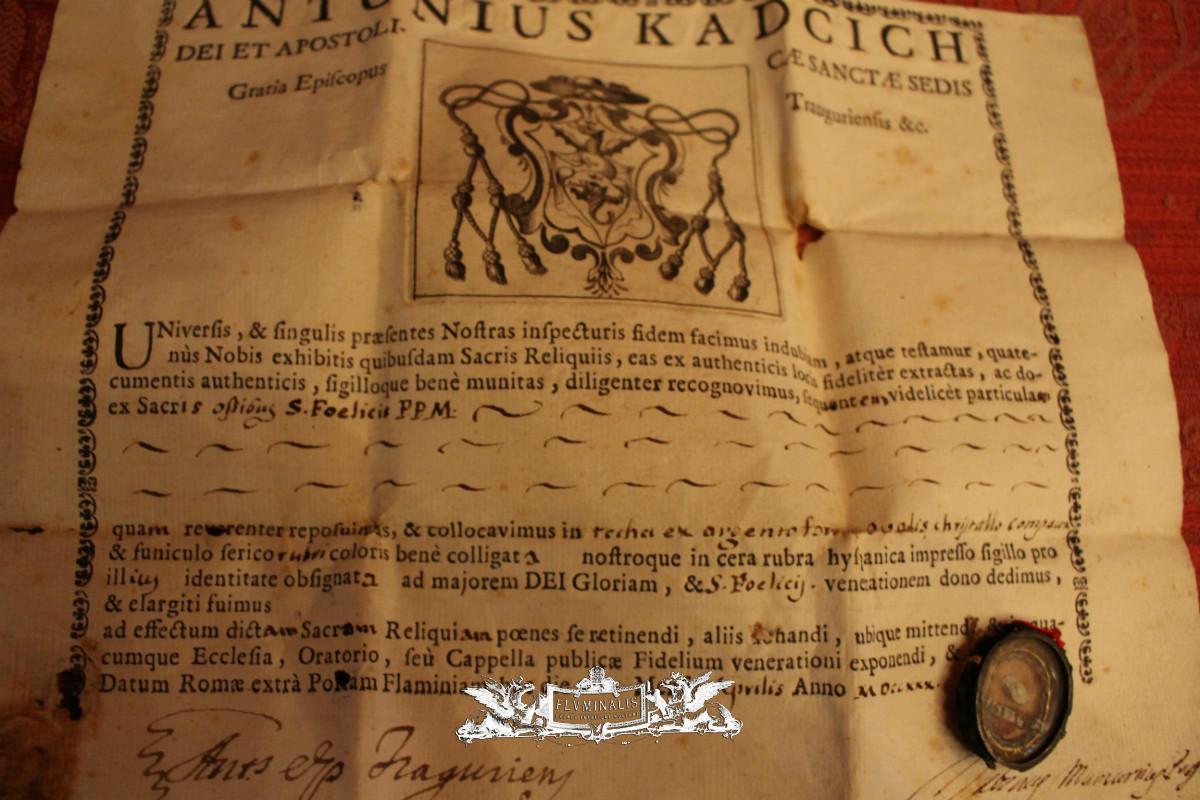 ANTONIUS KADCICH
DEI ET APOSTOLI- CÆ SANCTÆ SEDIS
Gratia Epiſcopus Traguriensis &c.
UNiverſis, & ſingulis præſentes Noſtras inſpecturis fidem facimus indubiam, atque teſtamur, quate-
nùs Nobis exhibitis quibuſdam Sacris Reliquiis, eas ex authenticis locis fidelitèr extractas, ac do-
cumentis authenticis, ſigilloque benè munitas, diligenter recognovimus, ſequentem, videlicèt particulam
ex Sacris oſsibus S. Foelicis P.P.M.
quam reverenter repoſuimus, & collocavimus in theca ex argento ovalis chryſtallo
& funiculo ſerico rubri coloris benè colligata noſtroque in cera rubra hyſpanica impreſſo ſigillo pro
illius identitate obſignata ad majorem DEI Gloriam, & S. Foelicij. venerationem dono dedimus,
& elargiti fuimus
ad effectum dictam Sacram Reliquiam pœnes ſe retinendi, aliis donandi, ubique mittendi,
cumque Eccleſia, Oratorio, ſeù Cappella publicæ Fidelium venerationi exponendi, &
Datum Romæ extrà Portam Flaminiam Aprilis Anno
Ants Ep Tragurien
FLVMINALIS